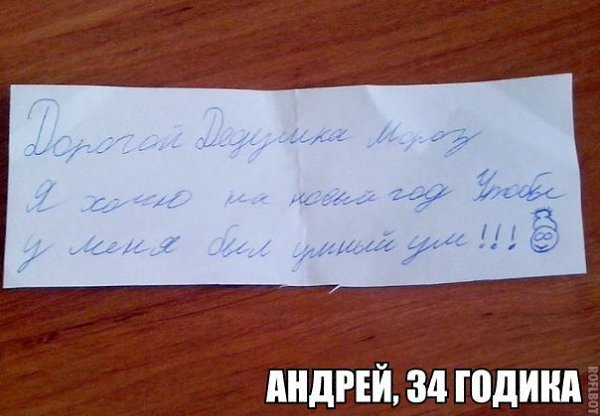 Дорогой Дедушка Мороз
Я хочю на новый год Чтобы
у меня был умный ум!!!
АНДРЕЙ, 34 ГОДИКА
ROFLBOT